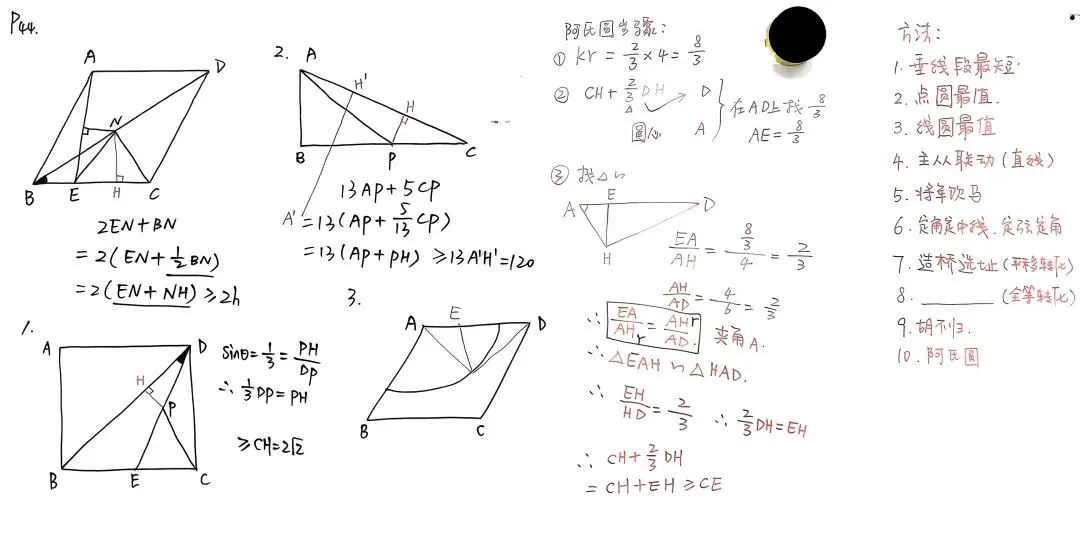 P44.
A
D
N
B
E
H
C
2EN+BN
=2(EN+1/2BN)
=2(EN+NH)≥2h
2.
A
H'
H
B
P
C
A'
13AP+5CP
=13(AP+5/13CP)
=13(AP+PH)≥13A'H'=120
1.
A
D
H
P
B
E
C
sinθ=1/3=PH/DP
∴1/3DP=PH
≥CH=2√2
3.
A
E
D
B
C
阿氏圆步骤:
① kr=2/3×4=8/3
② CH+2/3DH
D
圆心
A
在AD上找8/3
AE=8/3
③ 找△∽
A
E
D
H
EA/AH=8/3/4=2/3
AH/AD=4/6=2/3
∴EA/AHr=AHr/AD. 夹角A.
∴△EAH∽△HAD.
∴EH/HD=2/3 ∴2/3DH=EH
∴CH+2/3DH
=CH+EH≥CE
方法:
1.垂线段最短.
2.点圆最值.
3.线圆最值
4.主从联动(直线)
5.将军饮马
6.定角定中线.定弦定角
7.造桥选址(平移转化)
8.________(全等转化)
9.胡不归.
10.阿氏圆